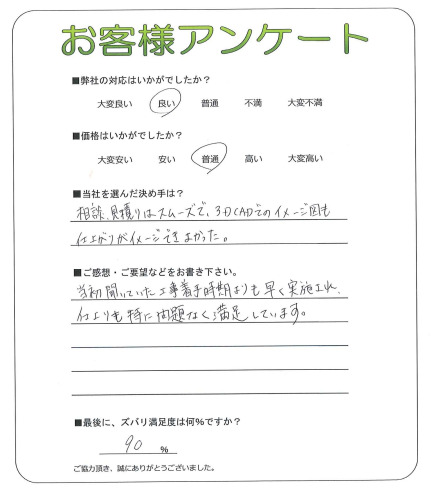 お客様アンケート
■弊社の対応はいかがでしたか？
大変良い 良い 普通 不満 大変不満
■価格はいかがでしたか？
大変安い 安い 普通 高い 大変高い
■当社を選んだ決め手は？
相談、見積りはスムーズで、3DCADでのイメージ図も
仕上がりがイメージできよかった。
■ご感想・ご要望などをお書き下さい。
当初聞いていた工事着手時期よりも早く実施され、
仕上りも特に問題なく満足しています。
■最後に、ズバリ満足度は何％ですか？
90 %
ご協力頂き、誠にありがとうございました。